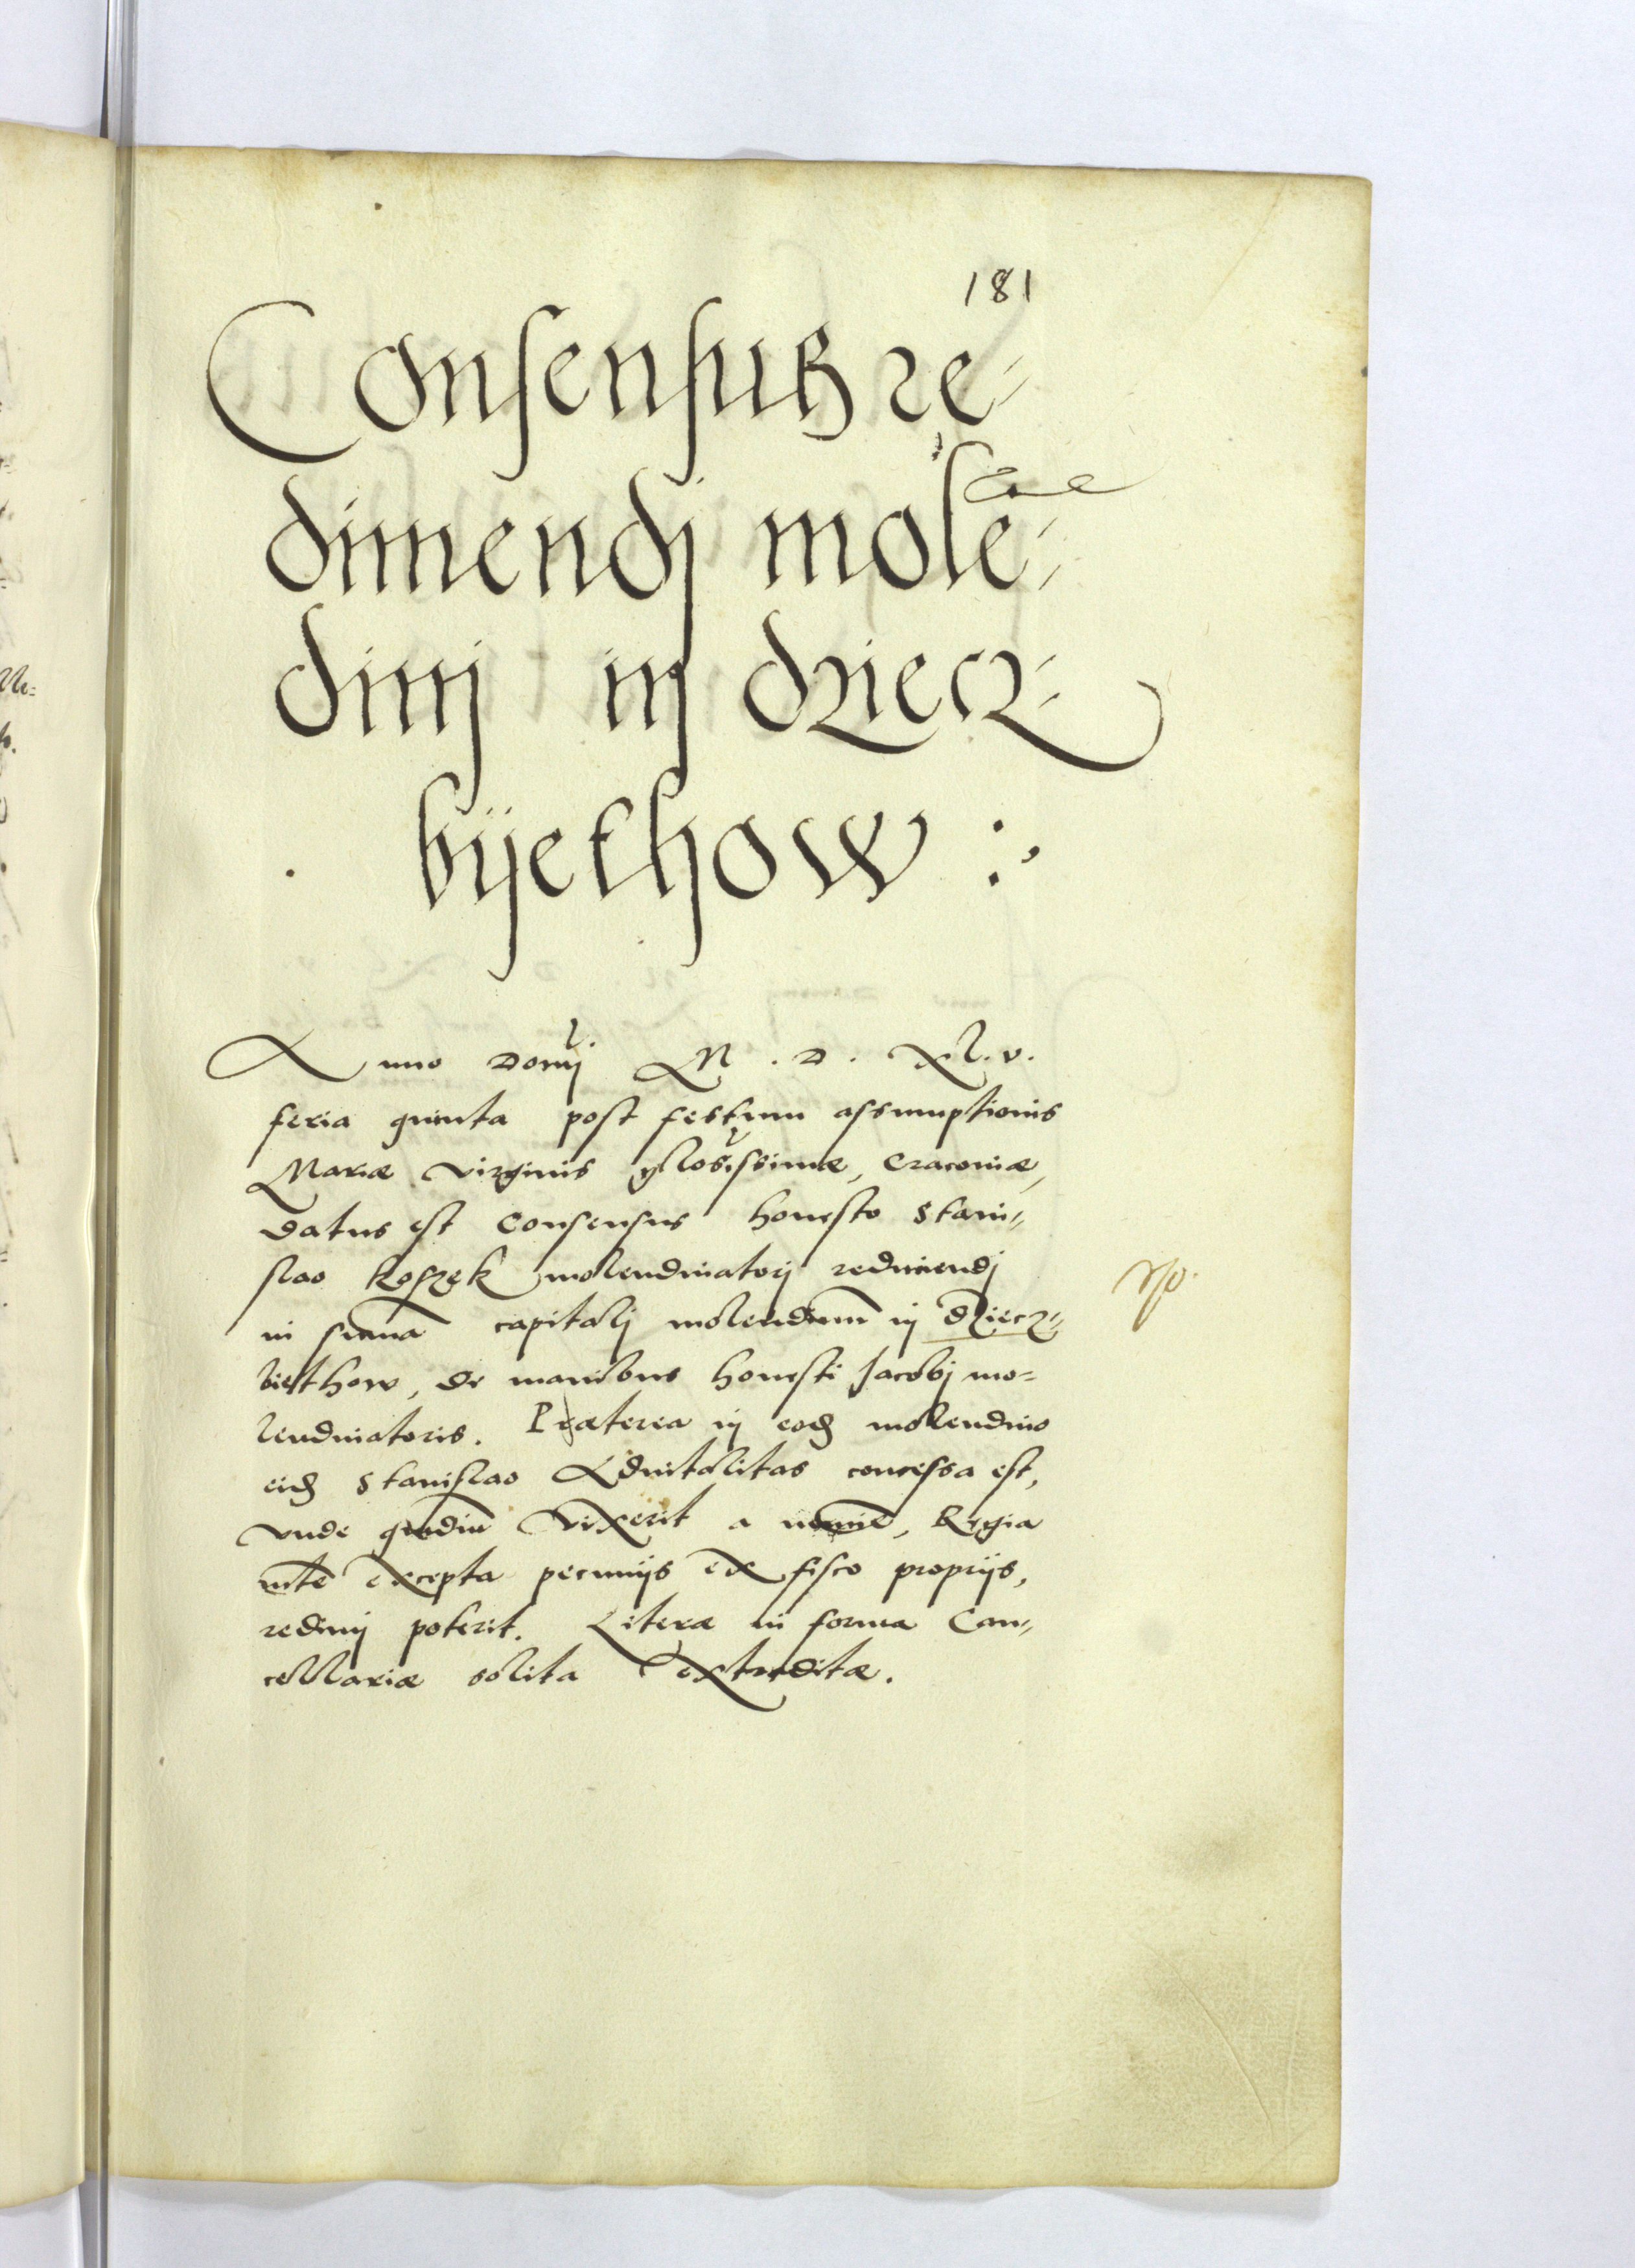 181
Consensus re-
dimendj mole-
dinj in dziecz-
bijethow :
Anno Domj M. D. XL. v.
feria quinta post festum assumptionis
Mariæ virginis glosissimæ, Cracoviæ,
datus est consensus honesto Stani-
slao Koszek molendinatorj redimendj
in suma capitalj molendinum in dziecz-
biethow, de manibus honesti Jacobj mo-
lendinatoris. Præterea in eod molendino
eid Stanislao Advitalitas concessa est,
vnde quodiu vixerit a nemine, Regia
mte excepta pecunijs ex fisco proprijs,
redimj poterit. Literæ in forma Can-
cellariæ solita extraditæ.